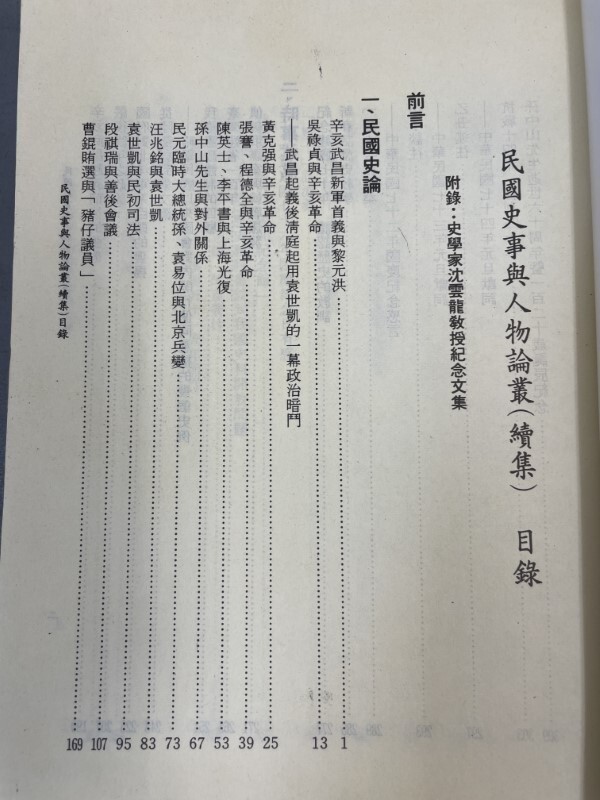 民國史事與人物論叢(續集) 目錄
附錄：史學家沈雲龍教授紀念文集
前言
一、民國史論
辛亥武昌新軍首義與黎元洪 1
吳祿貞與辛亥革命 13
——武昌起義後清庭起用袁世凱的一幕政治暗鬥
黃克强與辛亥革命 25
張謇、程德全與辛亥革命 39
陳英士、李平書與上海光復 53
孫中山先生與對外關係 67
民元臨時大總統孫、袁易位與北京兵變 73
汪兆銘與袁世凱 83
袁世凱與民初司法 95
段祺瑞與善後會議 107
曹錕賄選與「豬仔議員」 169
民國史事與人物論叢(續集)目錄